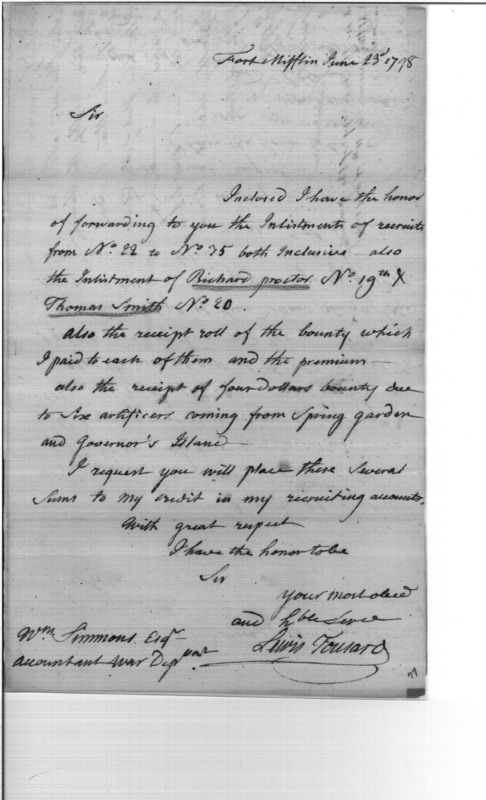 Fort Mifflin June 23d 1798
Sir
Inclosed I have the honor
of forwarding to you the Inlistments of recruits
from No. 22 to No. 35 both Inclusive – also
the Inlistment of Richard proctor No. 19th &
Thomas Smith No 20.
also the receipt roll of the bounty which
I paid to each of them and the premium –
also the receipt of four Dollars bounty due
to Six artificers coming from Spring garden
and Governor's Island –
I request you will place these Several
Sums to my credit in my recruiting accounts.
With great respect
I have the honor to be
Sir
your most obed
and hble Serve
Lewis Tousard
Wm Simmons Esqr
accountant War Depment